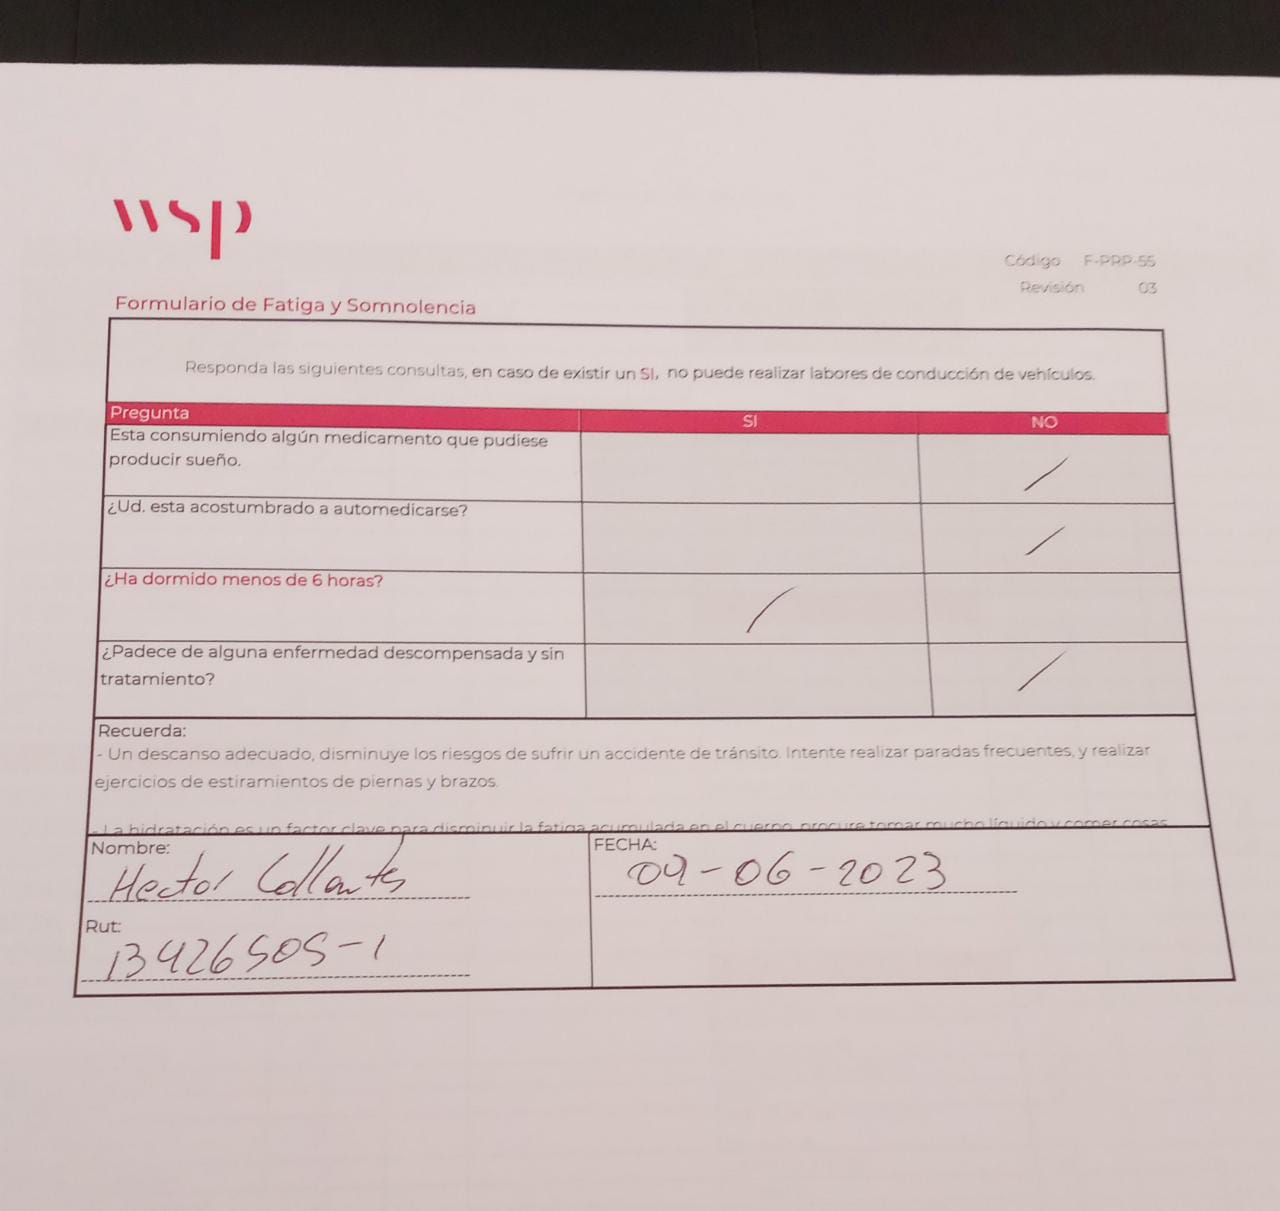 wsp
Código F-PRP-55
Revisión 03
Formulario de Fatiga y Somnolencia
Responda las siguientes consultas, en caso de existir un SI, no puede realizar labores de conducción de vehículos.
Pregunta SI NO
Esta consumiendo algún medicamento que pudiese
producir sueño.
¿Ud. esta acostumbrado a automedicarse?
¿Ha dormido menos de 6 horas?
¿Padece de alguna enfermedad descompensada y sin
tratamiento?
Recuerda:
- Un descanso adecuado, disminuye los riesgos de sufrir un accidente de tránsito. Intente realizar paradas frecuentes, y realizar
ejercicios de estiramientos de piernas y brazos.
- La hidratación es un factor clave para disminuir la fatiga acumulada en el cuerpo, procure tomar mucho líquido y comer cosas
Nombre: Hector Collantes
FECHA: 09-06-2023
Rut: 13426505-1